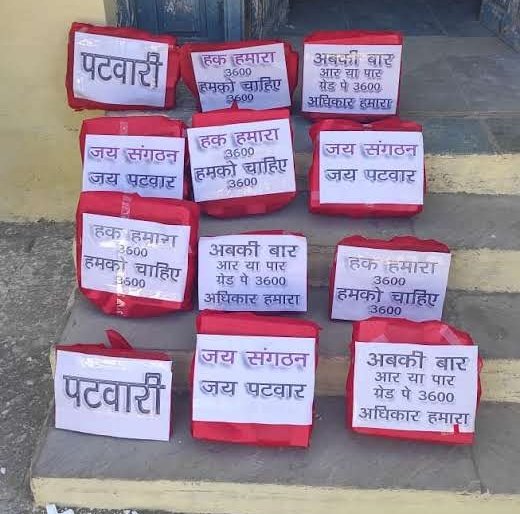 पटवारी
हक हमारा
3600
हमको चाहिए
3600
अबकी बार
आर या पार
ग्रेड पे 3600
अधिकार हमारा
जय संगठन
जय पटवार
हक हमारा
3600
हमको चाहिए
3600
जय संगठन
जय पटवार
हक हमारा
3600
हमको चाहिए
3600
अबकी बार
आर या पार
ग्रेड पे 3600
अधिकार हमारा
हक हमारा
3600
हमको चाहिए
3600
पटवारी
जय संगठन
जय पटवार
अबकी बार
आर या पार
ग्रेड पे 3600
अधिकार हमारा